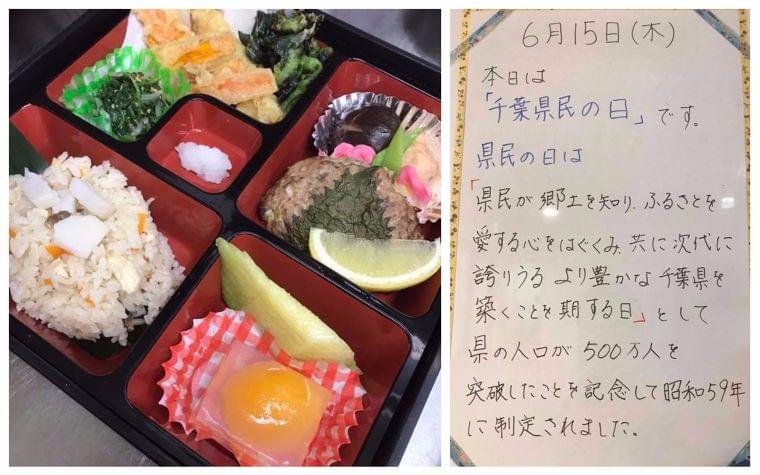 6月15日(木)
本日は
「千葉県民の日」です。
県民の日は
「県民が郷土を知り、ふるさとを
愛する心をはぐくみ、共に次代に
誇りうるより豊かな千葉県を
築くことを期する日」として
県の人口が500万人を
突破したことを記念して昭和59年
に制定されました。